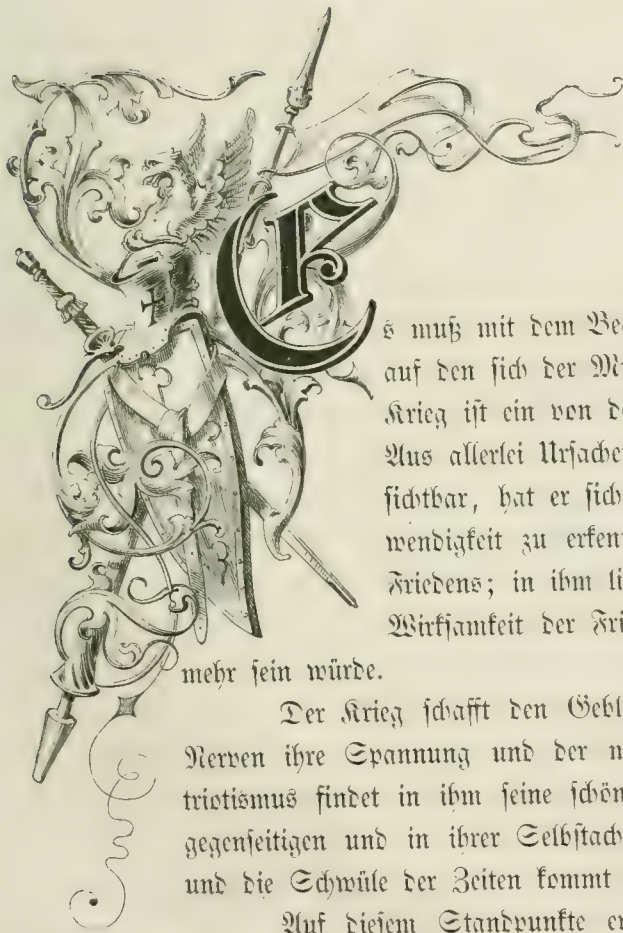 Es muß mit dem Be
auf den sich der M
Krieg ist ein von d
Aus allerlei Ursache
sichtbar, hat er sich
wendigkeit zu erken
Friedens; in ihm li
Wirksamkeit der Fri
mehr sein würde.
Der Krieg schafft den Gebl
Nerven ihre Spannung und der n
triotismus findet in ihm seine schön
gegenseitigen und in ihrer Selbstach
und die Schwüle der Zeiten kommt
Auf diesem Standpunkte er